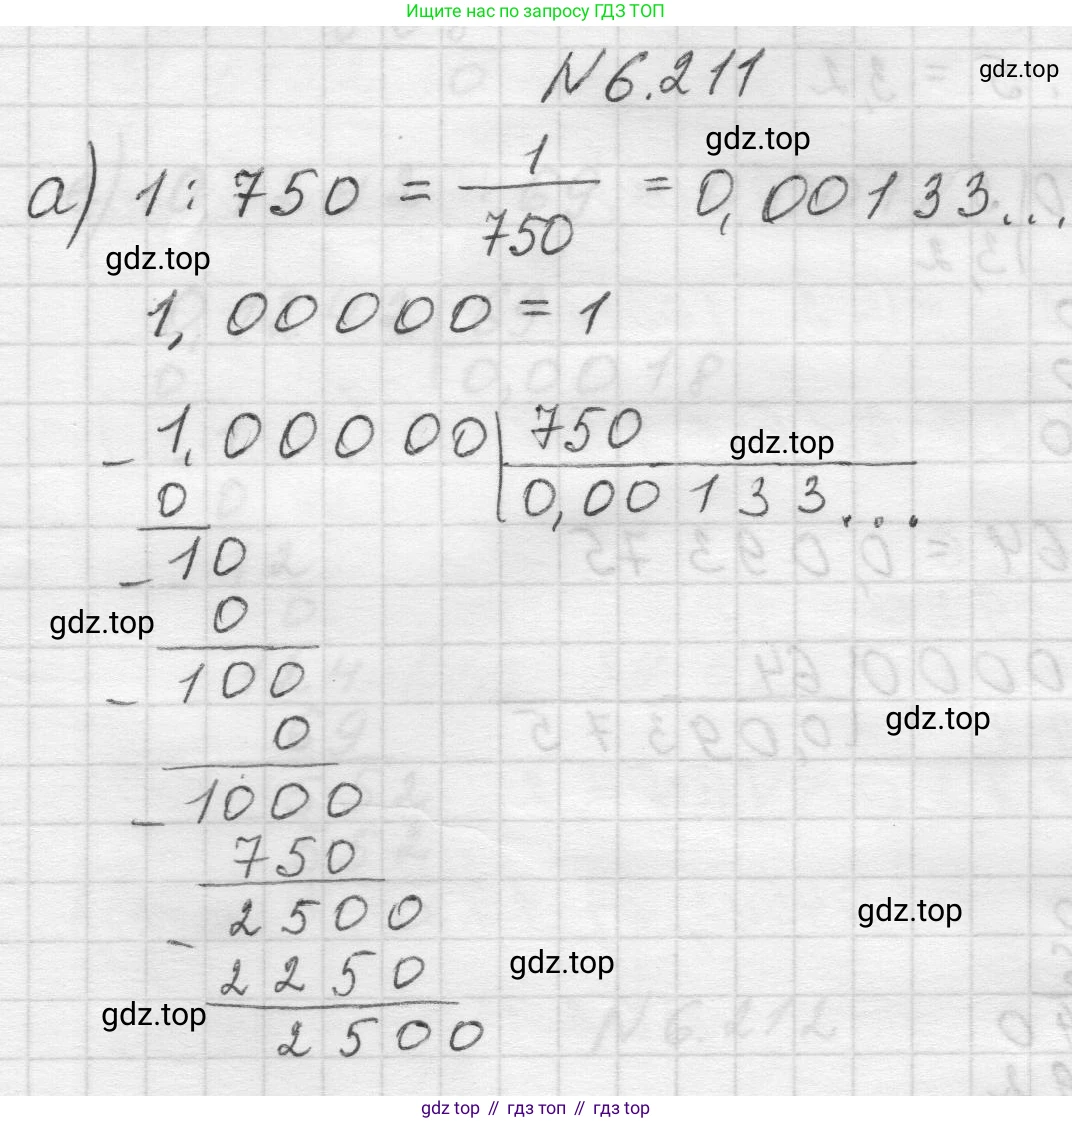 Ищите нас по запросу ГДЗ ТОП
N 6.211
gdz.top
gdz.top
а) 1 : 750 = 1/750 = 0,00133...,
gdz.top
1,00000 = 1
- 1,00000 | 750
gdz.top
0 0,00133...
- 10
gdz.top
0
- 100
gdz.top
0
- 1000
750
- 2500
gdz.top
2250
gdz.top
gdz.top
2500
gdz top // гдз топ // гдз top